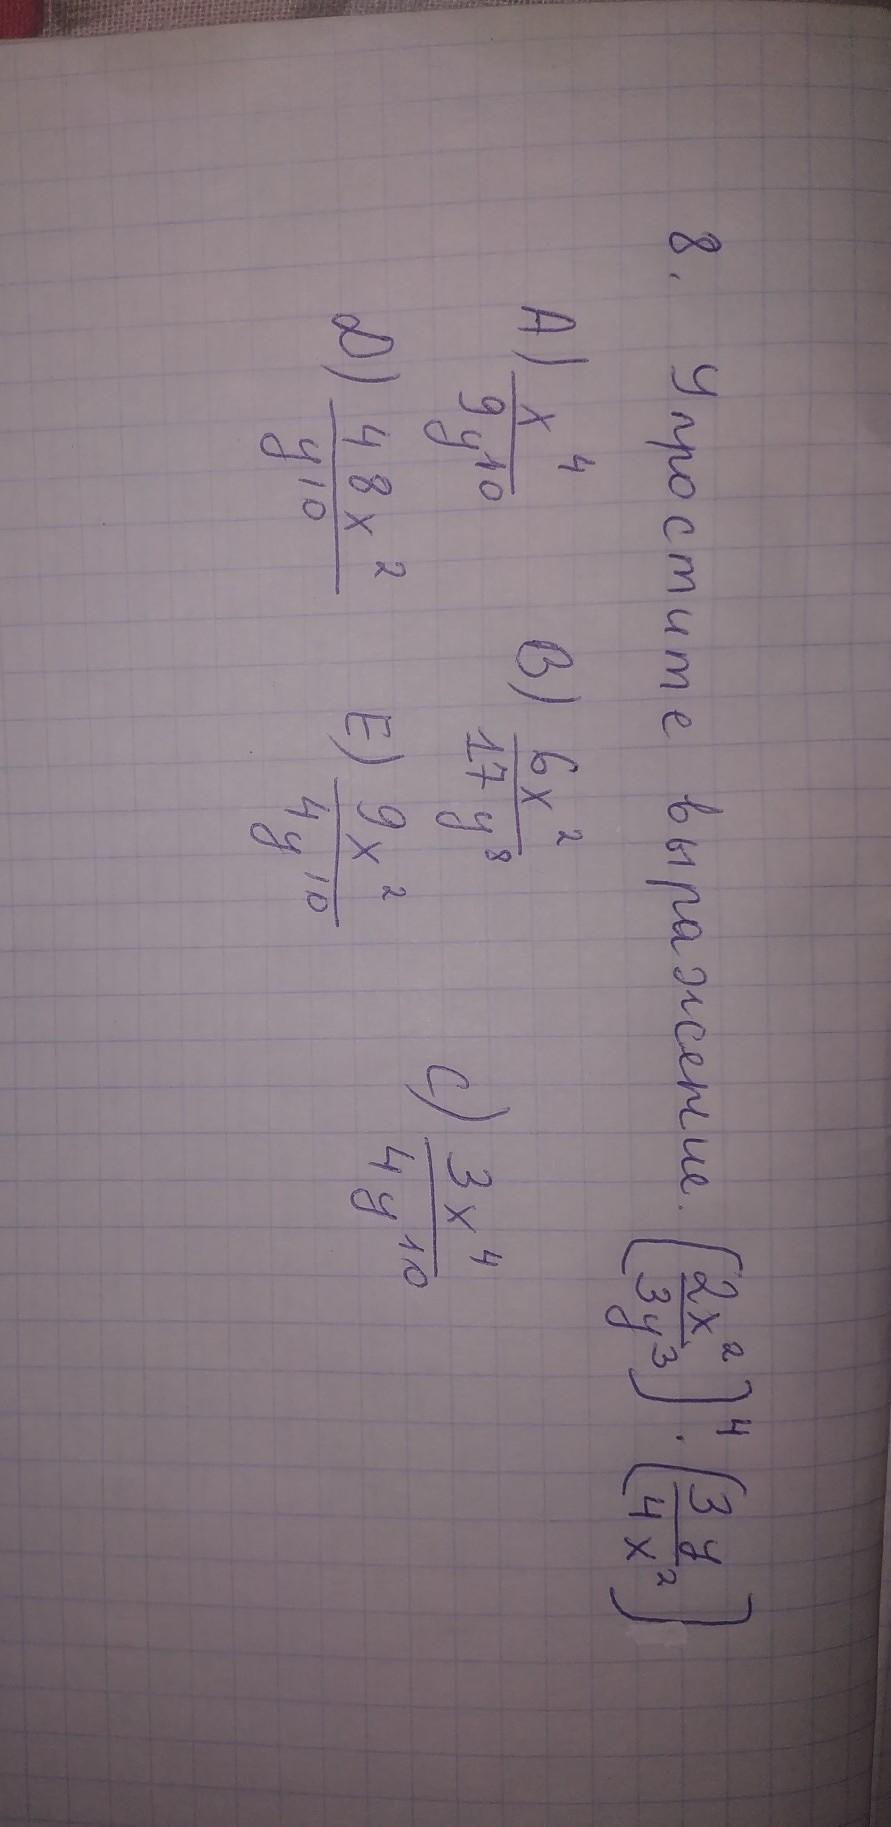 8. Упростите выражение. (2x²/3y³)⁴ · (3y/4x²)
A) x⁴/9y¹⁰ B) 6x²/17y⁸ C) 3x⁴/4y¹⁰
D) 48x²/y¹⁰ E) 9x²/4y¹⁰